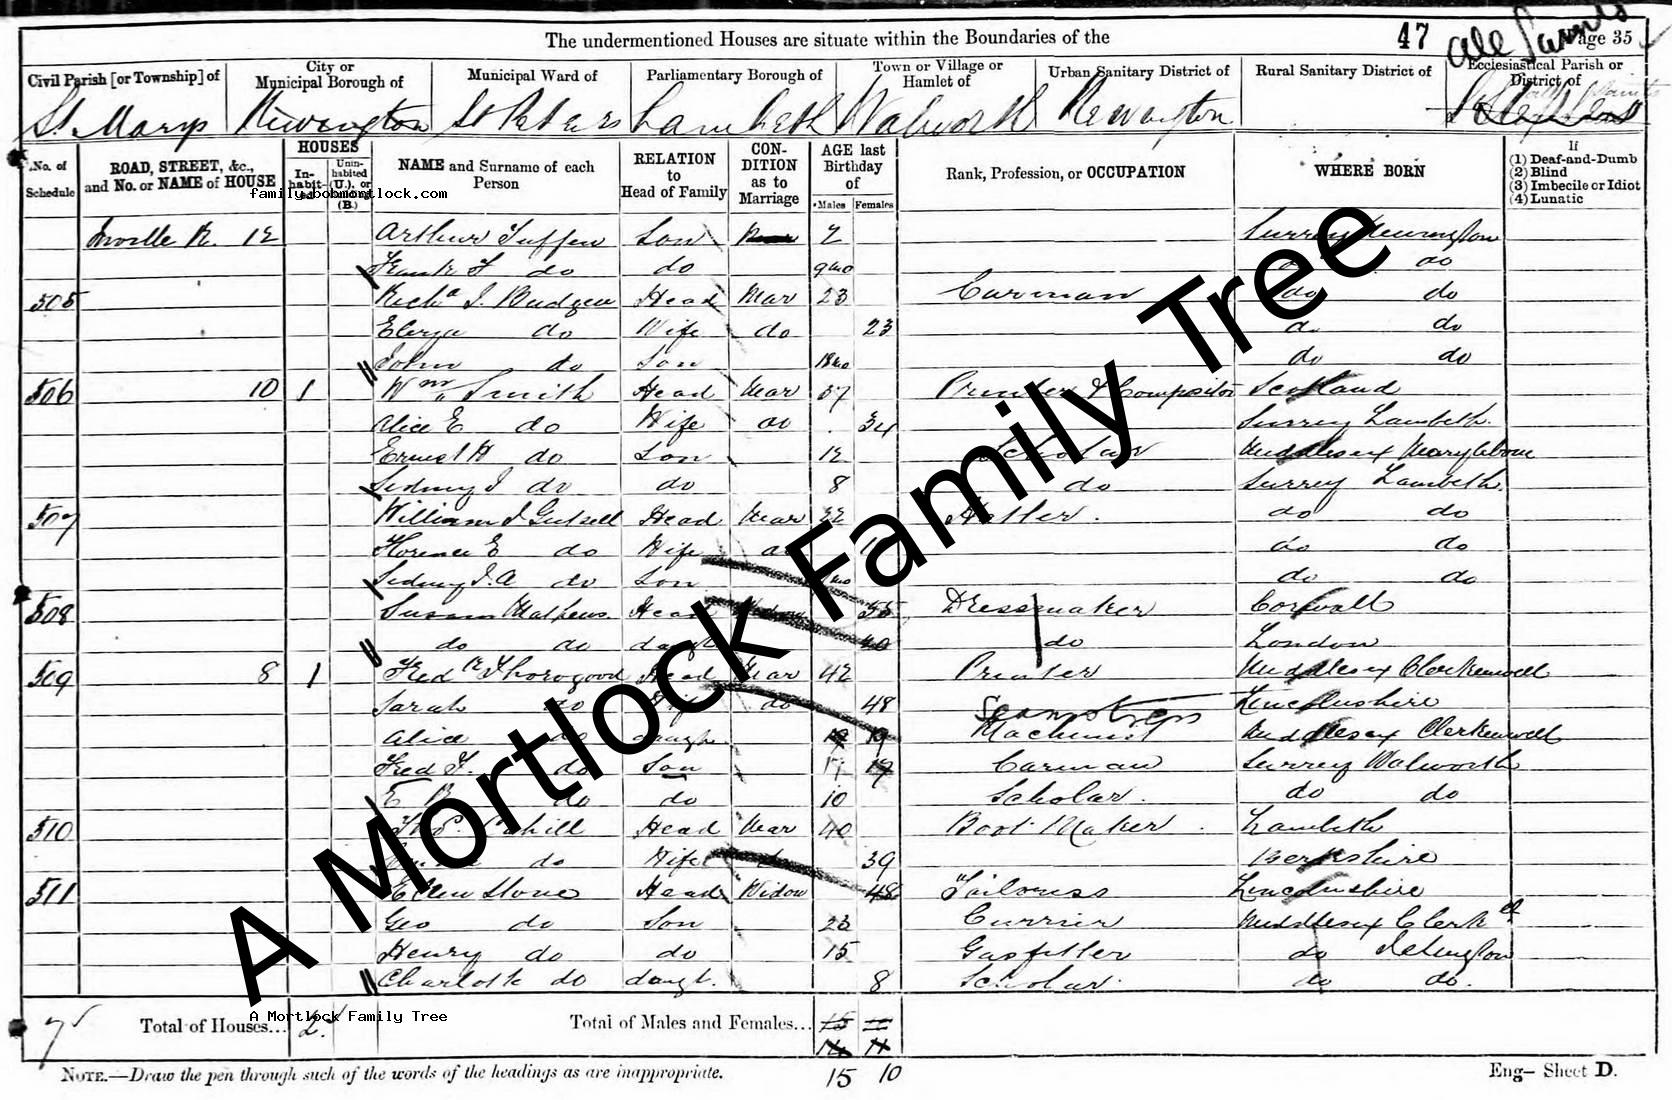 The undermentioned Houses are situate within the Boundaries of the 47 Page 35
All Saints
Civil Parish [or Township] of City or Municipal Borough of Municipal Ward of Parliamentary Borough of Town or Village or Hamlet of Urban Sanitary District of Rural Sanitary District of Ecclesiastical Parish or District of
St Marys Newington St Peters Lambeth Walworth Newington
No. of Schedule ROAD, STREET, &c., and No. or NAME of HOUSE HOUSES Inhabited Uninhabited (U.), or (B.) NAME and Surname of each Person RELATION to Head of Family CONDITION as to Marriage AGE last Birthday of Males Females Rank, Profession, or OCCUPATION WHERE BORN If (1) Deaf-and-Dumb (2) Blind (3) Imbecile or Idiot (4) Lunatic
family.bobmortlock.com
Inville R. 12 Arthur Tuffen Son 2 Surrey Newington
Frank F do do 9mo do
305 Richd J. Budgen Head Mar 23 Carman do do
Eliza do Wife do 23 do do
John do Son 18mo do do
306 10 1 Wm Smith Head Mar 37 Printer & Compositor Scotland
Alice E do Wife do 34 Surrey Lambeth
Ernest H do Son 12 Scholar Middlesex Marylebone
Sidney J do do 8 do Surrey Lambeth
307 William J Gutsell Head Mar 22 do do
Florence E do Wife do do do
Sidney J. A do Son mo do do
308 Susan Mathews Head 55 Dressmaker Cornwall
do do daugh 20 do London
309 8 1 Fredk Thorogood Head Mar 42 Printer Middlesex Clerkenwell
Sarah do Wife do 48 Seamstress Lincolnshire
Alice do daugh 19 19 Machinist Middlesex Clerkenwell
Fred F. do Son 17 17 Carman Surrey Walworth
E do do 10 Scholar do do
310 Cahill Head Mar 40 Boot Maker Lambeth
do Wife do 39 Berkshire
311 Ellen Stone Head Widow 48 Tailoress Lincolnshire
Geo do Son 23 Currier Middlesex Clerk
Henry do do 15 Gasfitter do Islington
Charlotte do daugt. 8 Scholar do do
A Mortlock Family Tree
7 Total of Houses... 2 Total of Males and Females... 15 11
14 11
15 10
A Mortlock Family Tree
NOTE.—Draw the pen through such of the words of the headings as are inappropriate. Eng— Sheet D.